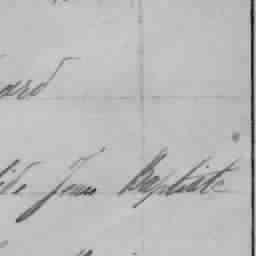 ard
de Jean Baptiste